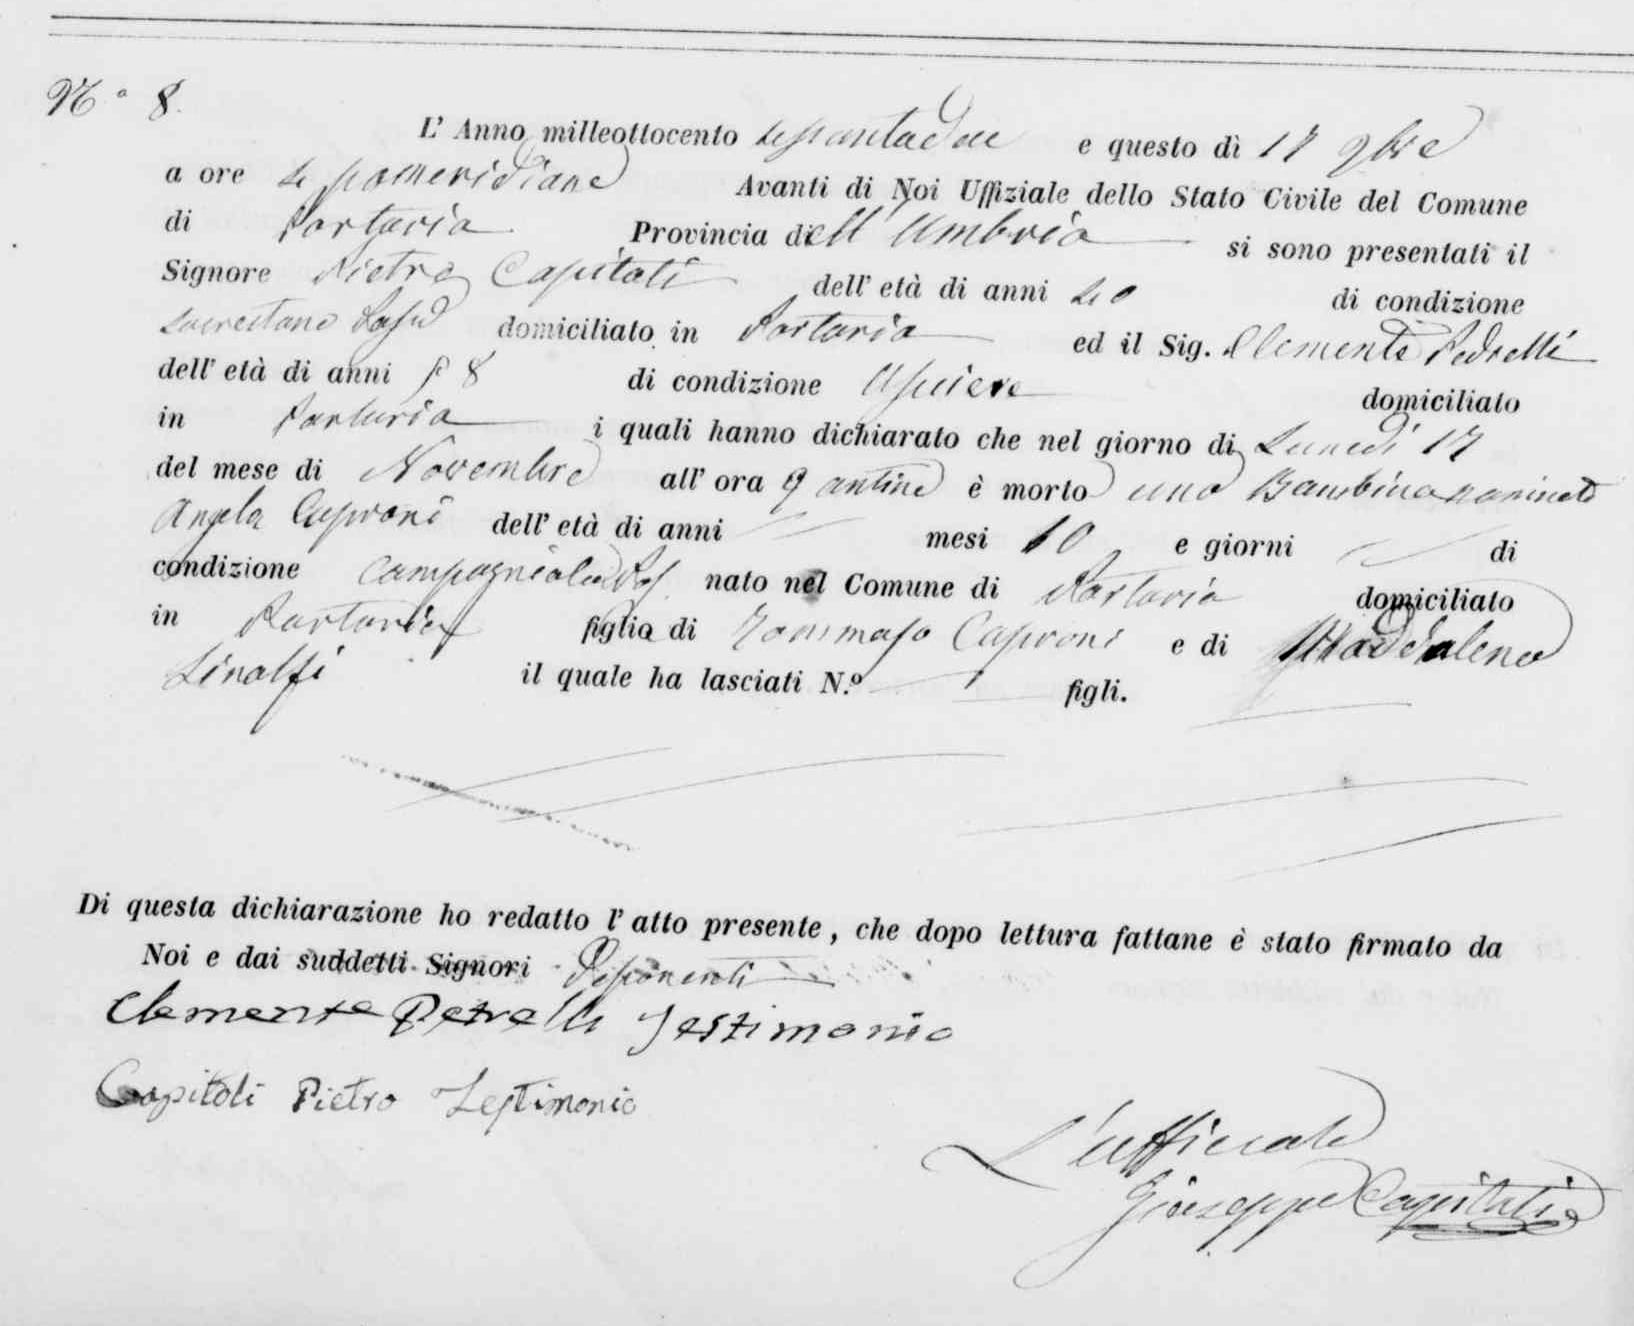 N.° 8.
L' Anno milleottocento sessantadue e questo dì 17 9bre
a ore pomeridiane Avanti di Noi Uffiziale dello Stato Civile del Comune
di Portaria Provincia dell' Umbria si sono presentati il
Signore Pietro Capitoli dell' età di anni di condizione
domiciliato in Portaria ed il Sig. Clemente Petrelli
dell' età di anni di condizione domiciliato
in Portaria i quali hanno dichiarato che nel giorno di Lunedì 17
del mese di Novembre all' ora 9 antime è morto una Bambina nominata
Angela Caproni dell' età di anni mesi 10 e giorni di
condizione nato nel Comune di Portaria domiciliato
in Portaria figlia di Tommaso Caproni e di Maddalena
il quale ha lasciati N.° figli.
Di questa dichiarazione ho redatto l' atto presente, che dopo lettura fattane è stato firmato da
Noi e dai suddetti Signori Deponenti
Clemente Petrelli Testimonio
Capitoli Pietro Testimonio
L'ufficiale
Giuseppe Capitoli